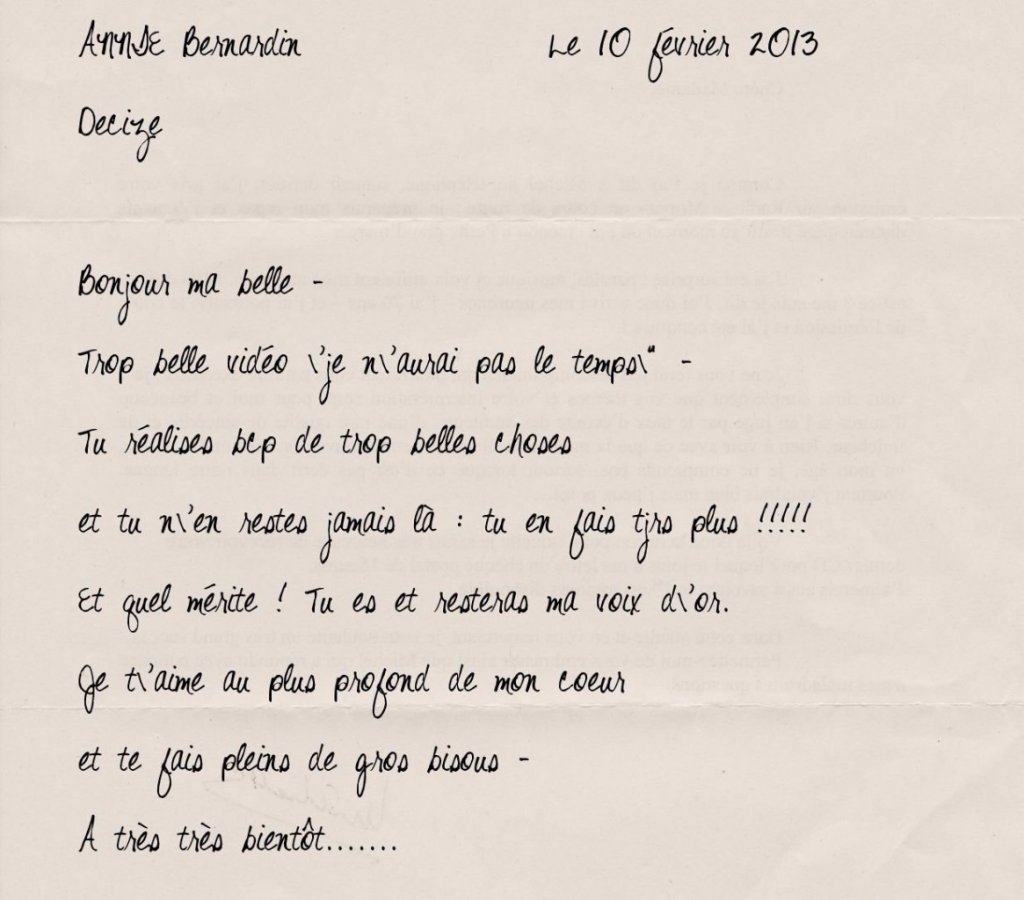 ANNIE Bernardin Le 10 février 2013
Decize
Bonjour ma belle -
Trop belle vidéo \'je n\'aurai pas le temps\" -
Tu réalises bcp de trop belles choses
et tu n\'en restes jamais là : tu en fais tjrs plus !!!!!
Et quel mérite ! Tu es et resteras ma voix d\'or.
Je t\'aime au plus profond de mon coeur
et te fais pleins de gros bisous -
A très très bientôt.......